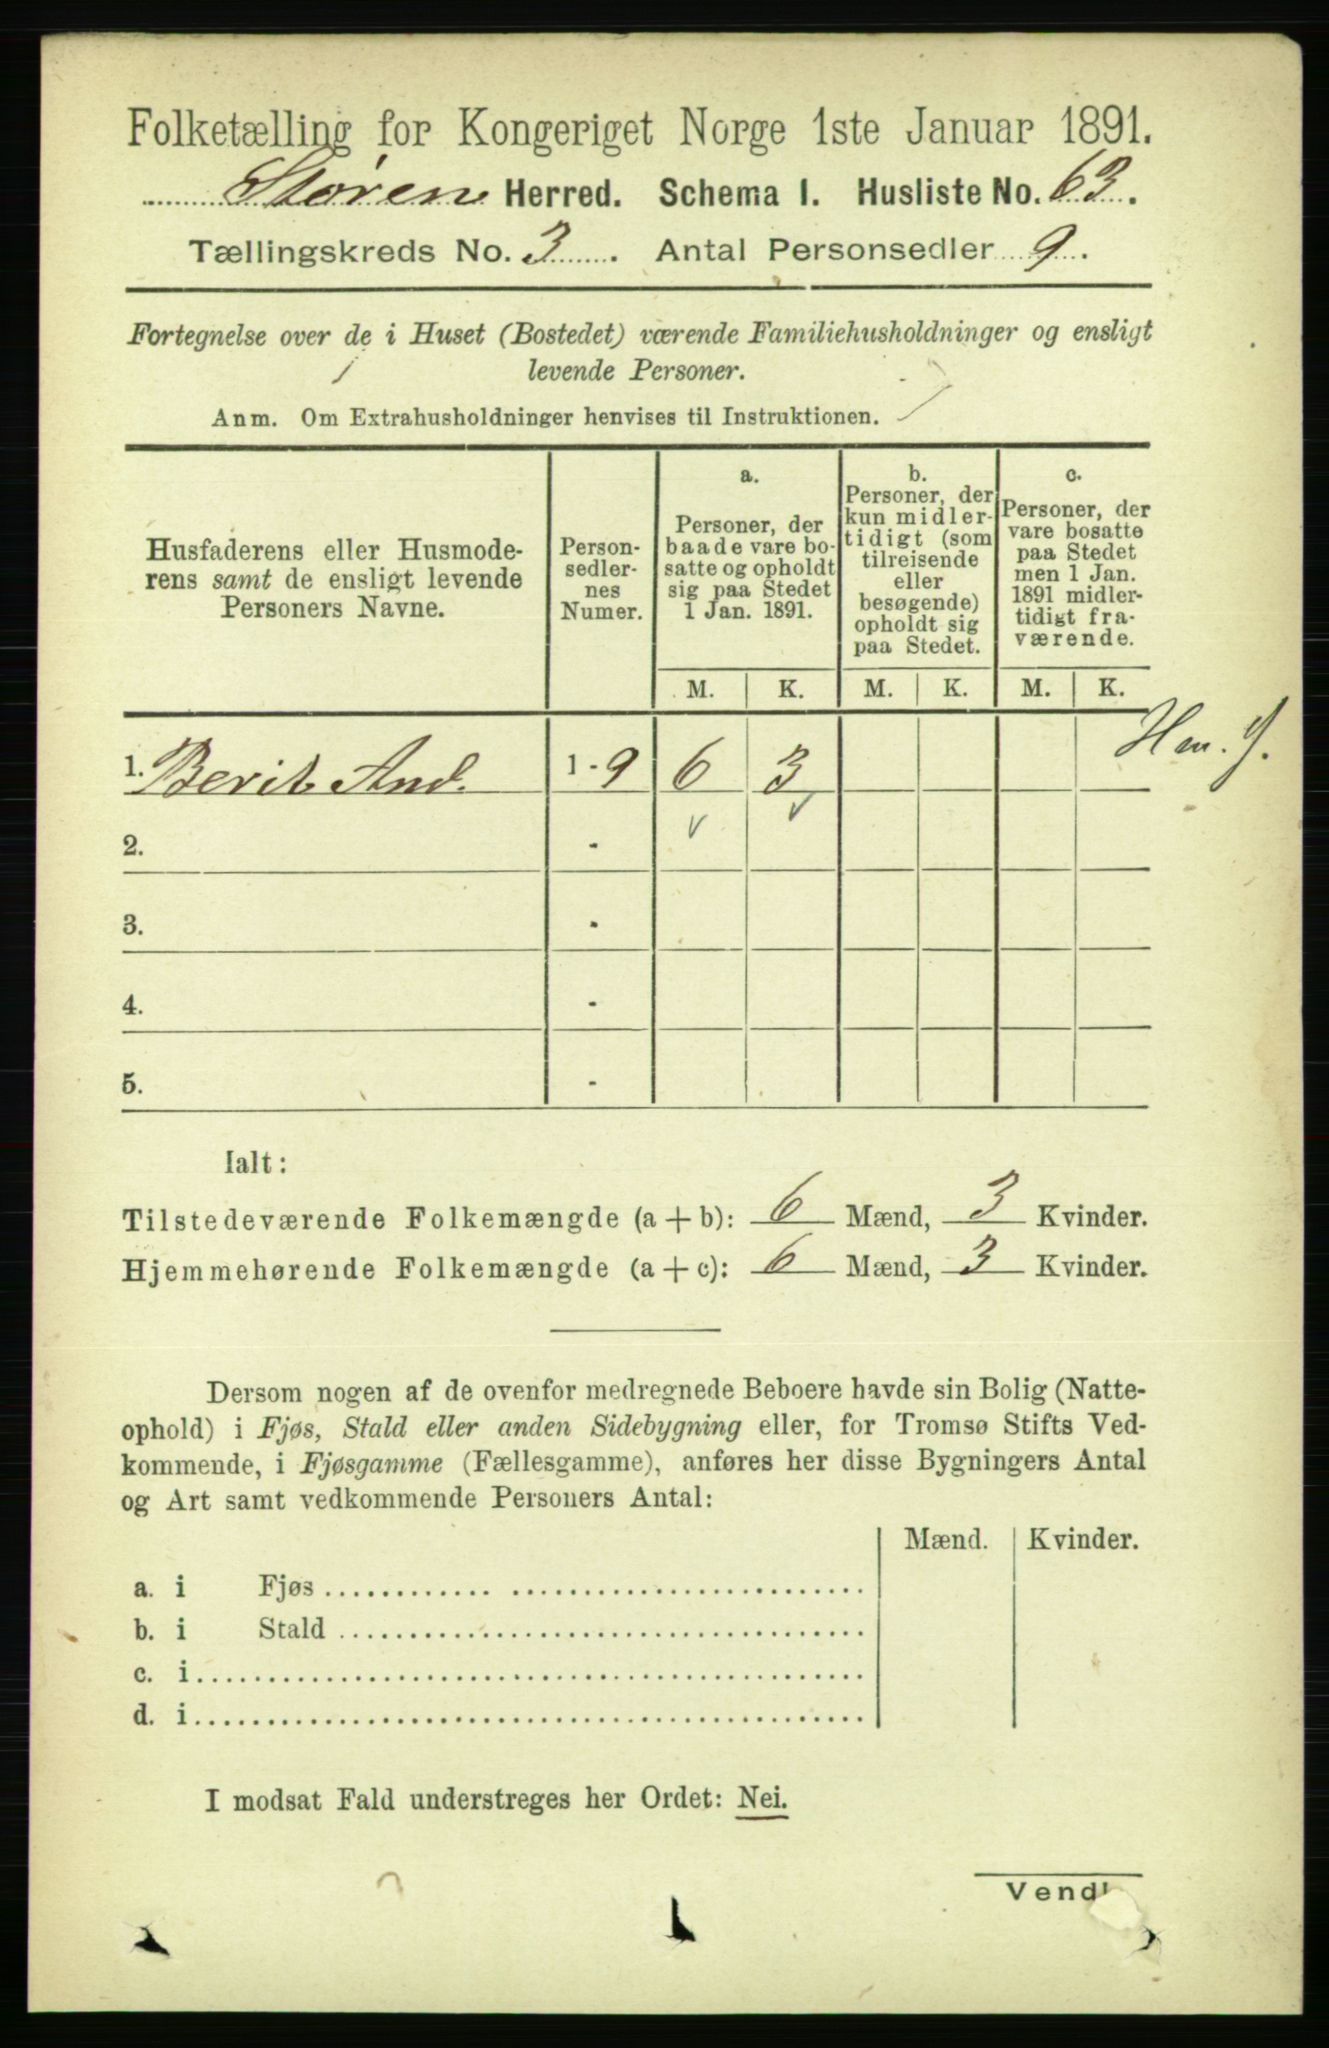 Folketælling for Kongeriget Norge 1ste Januar 1891.
Støren Herred. Schema I. Husliste No. 63.
Tællingskreds No. 3. Antal Personsedler 9.
Fortegnelse over de i Huset (Bostedet) værende Familiehusholdninger og ensligt
levende Personer.
Anm. Om Extrahusholdninger henvises til Instruktionen.
Husfaderens eller Husmode-
rens samt de ensligt levende
Personers Navne.
Person-
sedler-
nes
Numer.
a.
Personer, der
baade vare bo-
satte og opholdt
sig paa Stedet
1 Jan. 1891.
b.
Personer, der
kun midler-
tidigt (som
tilreisende
eller
besøgende)
opholdt sig
paa Stedet.
c.
Personer, der
vare bosatte
paa Stedet
men 1 Jan.
1891 midler-
tidigt fra-
værende.
M. K. M. K. M. K.
1. Berit And. 1 - 9 6 3
2. -
3. -
4. -
5. -
Ialt:
Tilstedeværende Folkemængde (a + b): 6 Mænd, 3 Kvinder.
Hjemmehørende Folkemængde (a + c): 6 Mænd, 3 Kvinder.
Dersom nogen af de ovenfor medregnede Beboere havde sin Bolig (Natte-
ophold) i Fjøs, Stald eller anden Sidebygning eller, for Tromsø Stifts Ved-
kommende, i Fjøsgamme (Fællesgamme), anføres her disse Bygningers Antal
og Art samt vedkommende Personers Antal:
Mænd. Kvinder.
a. i Fjøs
b. i Stald
c. i
d. i
I modsat Fald understreges her Ordet: Nei.
Vend!